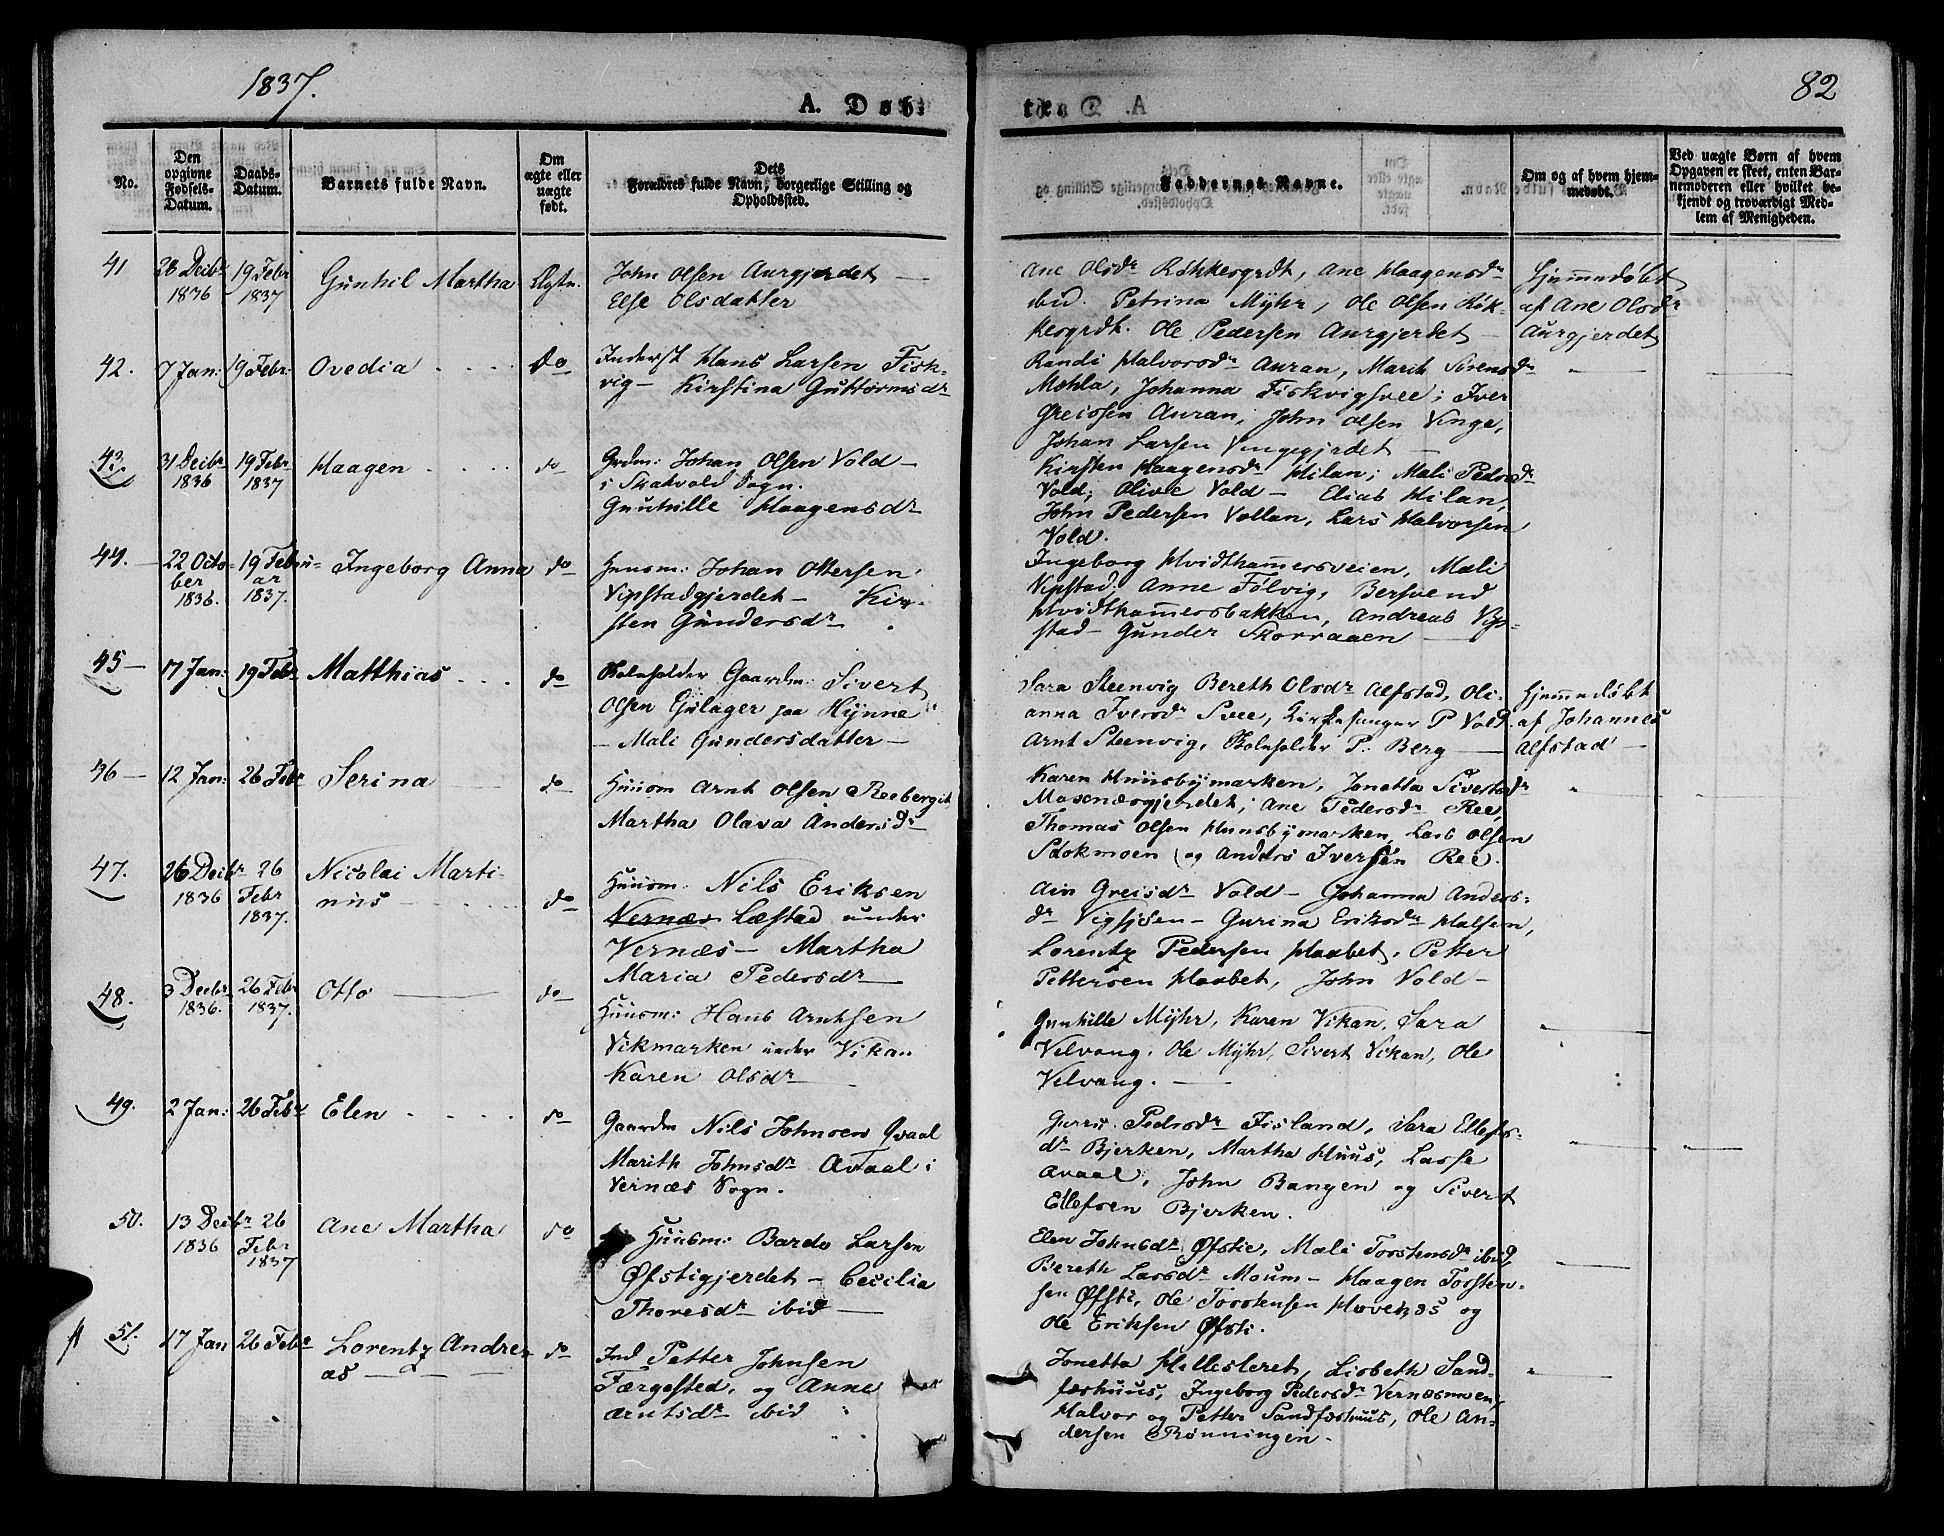 1837.
A. Døbte
82
No.
Den opgivne Fødsels-Datum.
Daabs-Datum.
Barnets fulde Navn.
Om ægte eller uægte født.
Dets Forældres fulde Navn, borgerlige Stilling og Opholdssted.
Faddernes Navne.
Om og af hvem hjemmedøbt.
Ved uægte Børn af hvem Opgaven er skeet, enten Barnemoderen eller hvilket bekjendt og troværdigt Medlem af Menigheden.
41
28 Decbr
1836
19 Febr
1837
Gunhil Martha
Ægte.
John Olsen Aurgjerdet —
Else Olsdatter
Ane Olsdr Røkkesgrdt, Ane Haagensdr
ibid. Petrina Myhr, Ole Olsen Røk-
kesgrdt. Ole Pedersen Aurgjerdet —
Hjemmedøbt
af Ane Olsdr
Aurgjerdet
42.
7 Jan:
19 Febr.
Ovedia
do
Inderst Hans Larsen Fisk-
vig — Kirstina Guttormsdr
Randi Halvorsdr Auran, Marit Sørensdr
Mæhla, Johanna Fiskvigsvee; Iver
Greissen Auran, John Olsen Vinge,
Johan Larsen Vingegjerdet —
43.
31 Decbr
1836
19 Febr
1837
Haagen
do
Grdm: Johan Olsen Vold —
i Skatvold Sogn.
Gunhille Haagensdr
Kirsten Haagensdr Milan; Mali Pedersdr
Vold; Olive Vold — Elias Milan,
John Pedersen Vollan, Lars Halvorsen
Vold.
44. —
22 Octo-
ber
1836.
19 Febru-
ar
1837.
Ingeborg Anna
do
Huusm: Johan Ottersen
Vipstadgjerdet — Kir-
sten Gundersdr
Ingeborg Hvidthammersveien, Mæli
Vipstad, Anne Følvig, Bersvend
Hvidthammersbakken, Andreas Vip-
stad — Gunder Skorraaen —
45 —
17 Jan:
19 Febr
Matthias
do
Gaardm: Sivert
Olsen Gylager paa Hynne
— Mali Gundersdatter —
Sara Steenvig Bereth Olsdr Alfstad, Oli-
anna Iversdr Svee, Kirkesanger P Vold.
Arnt Steenvig, P. Berg —
Hjemmedøbt
af Johannes
Alfstad —
46 —
12 Jan:
26 Febr
Serina
do
Huusm Arnt Olsen Reebergit
Martha Olava Andersdr
Karen Hunsbymarken, Jonetta Sivertsdr
Mosenæsgjerdet; Ane Pedersdr Ree,
Thomas Olsen Hunsbymarken, Lars Olsen
Stokmoen og Anders Iversen Ree.
47.
26 Decbr
1836
26
Febr
1837.
Nicolai Marti-
nus
do
Huusm: Nils Eriksen
Vernæs Læstad under
Vernæs — Martha
Maria Pedersdr —
Ain Greisdr Vold — Johanna Anders-
dr — Gurina Eriksdr Halsen,
Lorentz Pedersen Haabet, Petter
Pettersen Haabet, John Vold —
48.
3 Decbr
1836.
26 Febr
1837.
Otto
do
Huusm: Hans Arntsen
Vikmarken under Vikan
Karen Olsdr —
Gunhille Myhr, Karen Vikan, Sara
Velvang, Ole Myhr, Sivert Vikan, Ole
Velvang. —
49.
2 Jan:
26 Febr
Elen
do
Gaardm Nils Johnsen Qvaal
Marith Johnsdr Avaal i
Vernæs Sogn.
Gurru Pedersdr Fisland, Sara Ellefs-
dr Bjerken, Martha Huus, Lasse
Avaal, John Bangen og Sivert
Ellefsen Bjerken.
50.
13 Decbr
1836
26
Febr
1837
Ane Martha
do
Huusm: Bardo Larsen
Øfstigjerdet — Cecilia
Thoresdr ibid —
Elen Johnsdr Øfstie, Mæli Torstensdr ibid,
Bereth Larsdr Moum — Haagen Torsten-
sen Øfsti, Ole Torstensen Hovenæs og
Ole Eriksen Øfsti.
51.
17 Jan
26 Febr
Lorentz Andre-
as
do
Ind Petter Johnsen
Færgested, og Anne
Arntsdr ibid
Jonetta Hellesleret, Lisbeth Sand-
færhuus, Ingeborg Pedersdr Vernæsmoen,
Halvor og Petter Sandfærhuus, Ole An-
dersen Rønningen.